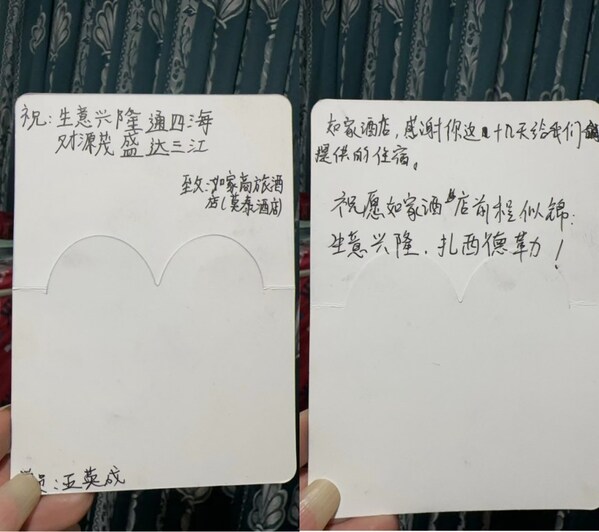 祝:生意兴隆通四海
财源茂盛达三江
致:如家商旅酒
店(莫泰酒店)
员:英成
如家酒店,感谢你这十几天给我们
提供的住宿。
祝愿如家酒店前程似锦:
生意兴隆.扎西德勒!